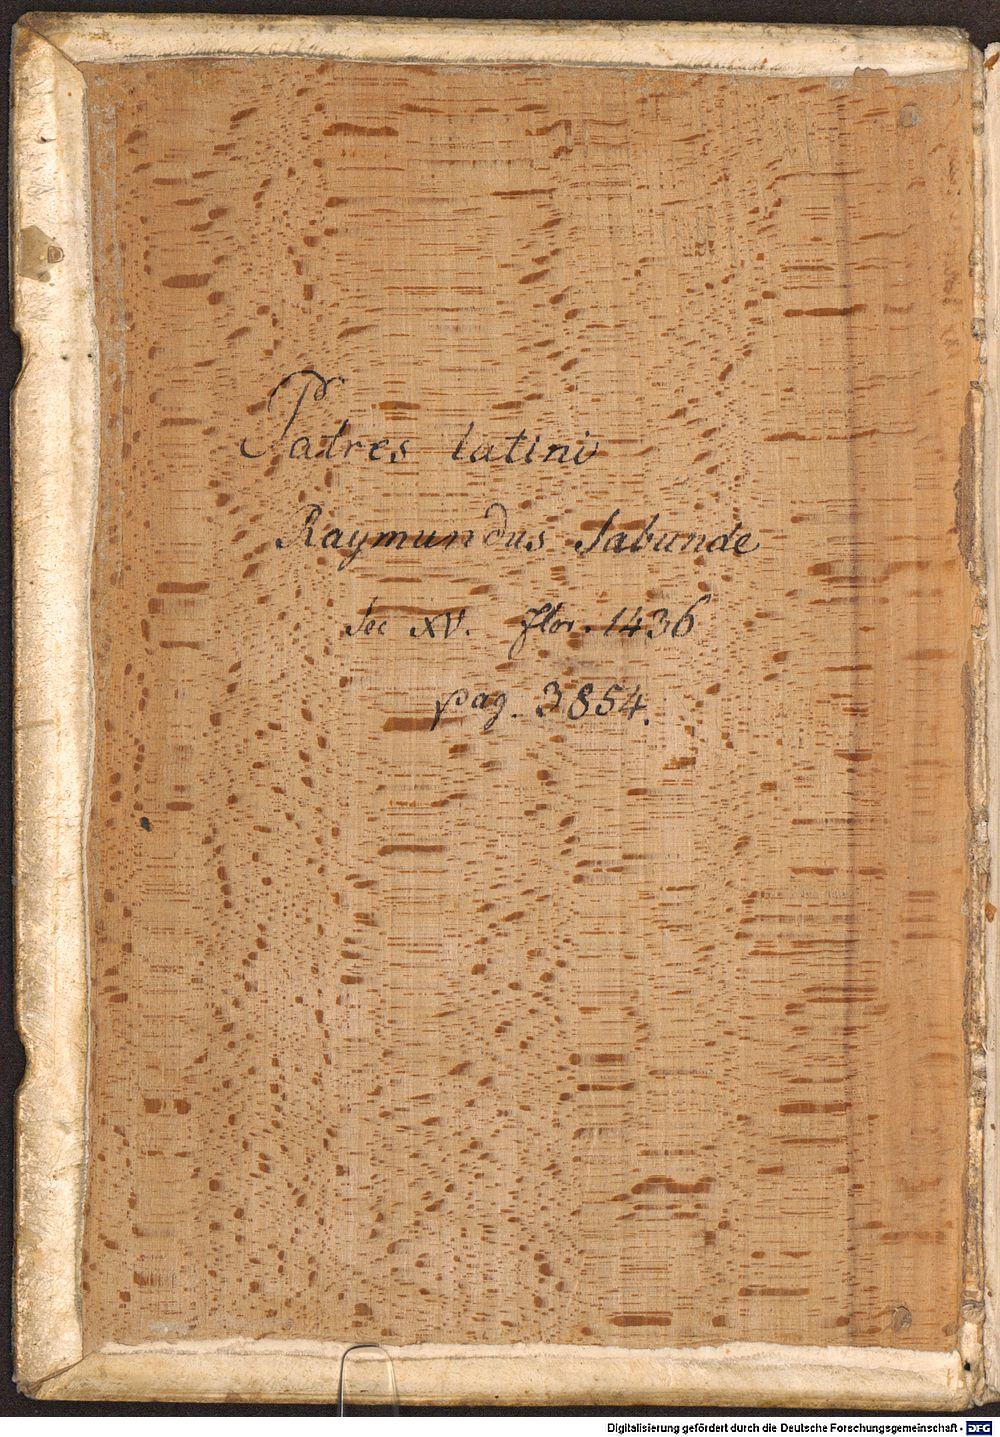 Patres latini
Raymundus Sabunde
Sec XV. flor. 1436
pag. 3854.
Digitalisierung gefördert durch die Deutsche Forschungsgemeinschaft - DFG